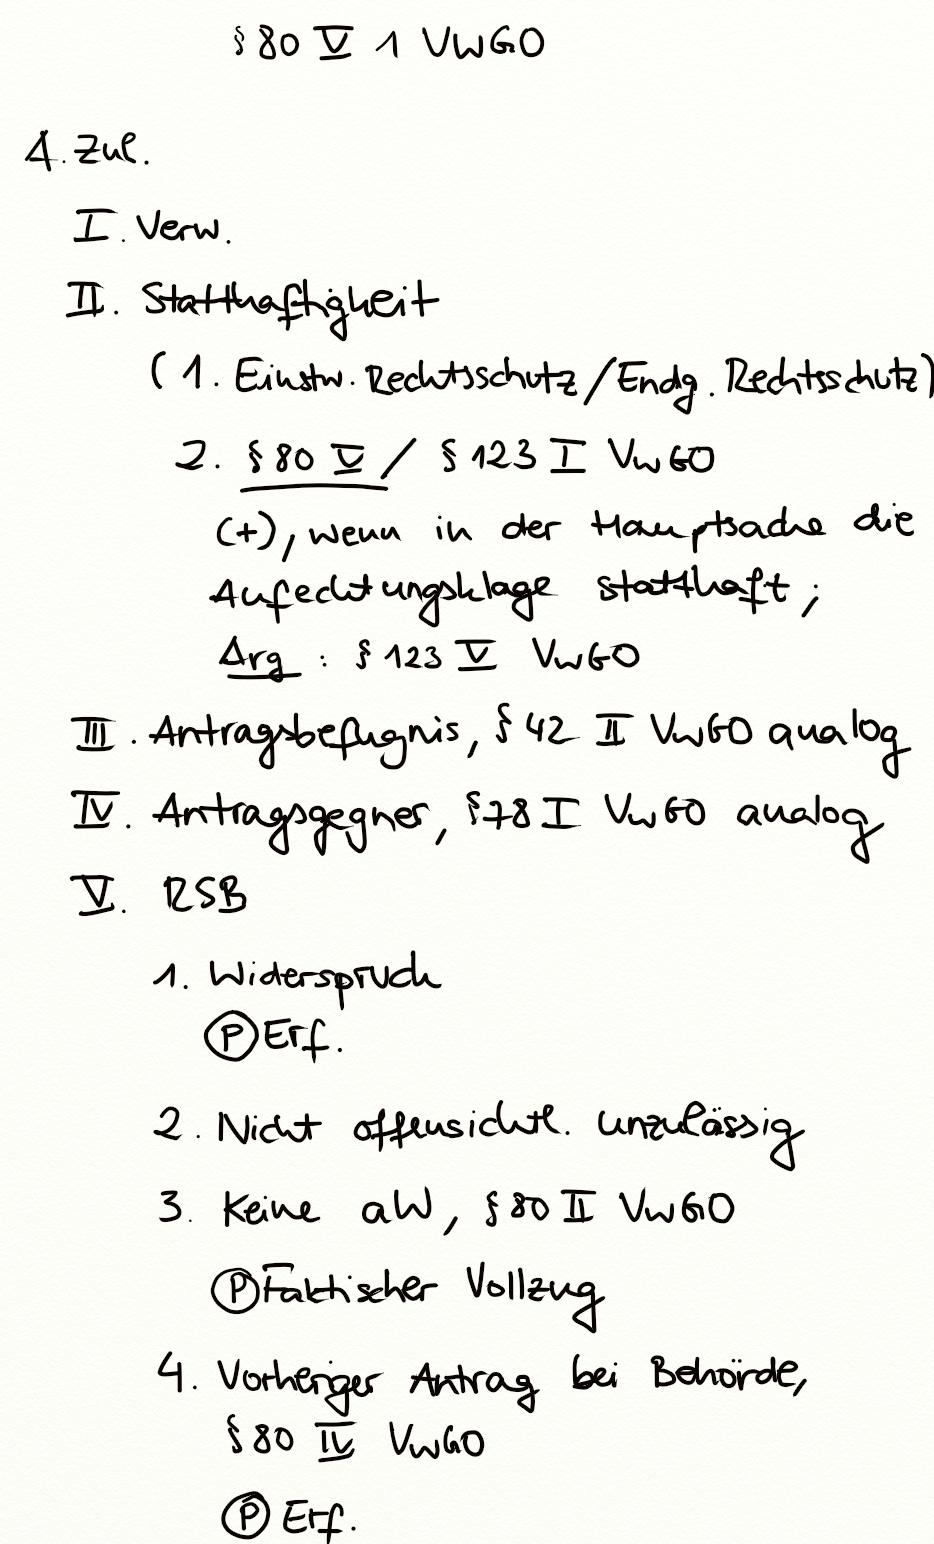 § 80 V 1 VwGO
A. Zul.
I. Verw.
II. Statthaftigkeit
(1. Einstw. Rechtsschutz / Endg. Rechtsschutz)
2. § 80 V / § 123 I VwGO
(+), wenn in der Hauptsache die
Anfechtungsklage statthaft;
Arg : § 123 V VwGO
III. Antragsbefugnis, § 42 II VwGO analog
IV. Antragsgegner, § 78 I VwGO analog
V. RSB
1. Widerspruch
(P) Erf.
2. Nicht offensichtl. unzulässig
3. Keine aW, § 80 II VwGO
(P) Faktischer Vollzug
4. Vorheriger Antrag bei Behörde,
§ 80 IV VwGO
(P) Erf.